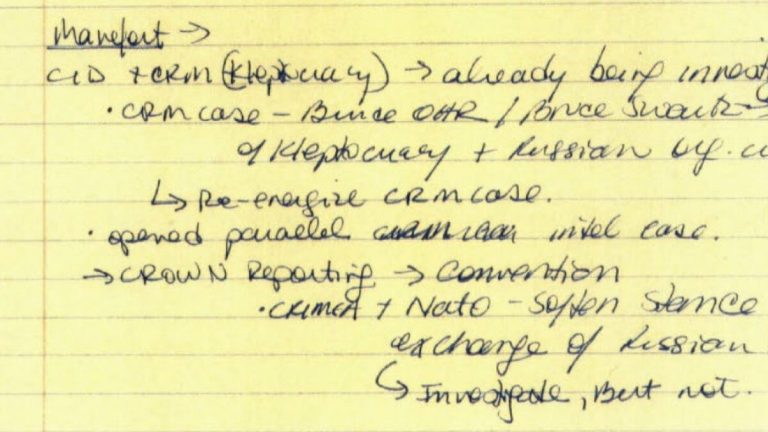 Manafort →
CID + CRM (Kleptocracy) → already being investig
• CRM case - Bruce OHR / Bruce Swartz →
of Kleptocracy + Russian org. c
↳ Re-energize CRM case.
• opened parallel intel case.
→ CROWN Reporting → Convention
• CRIMEA + Nato - Soften Stance
exchange of Russian
↳ Investigate, But not.